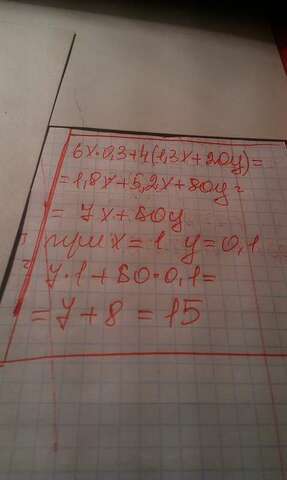 6x·0,3+4(1,3x+20y)=
=1,8x+5,2x+80y=
= 7x+80y
при x=1 y=0,1
7·1+80·0,1=
=7+8=15